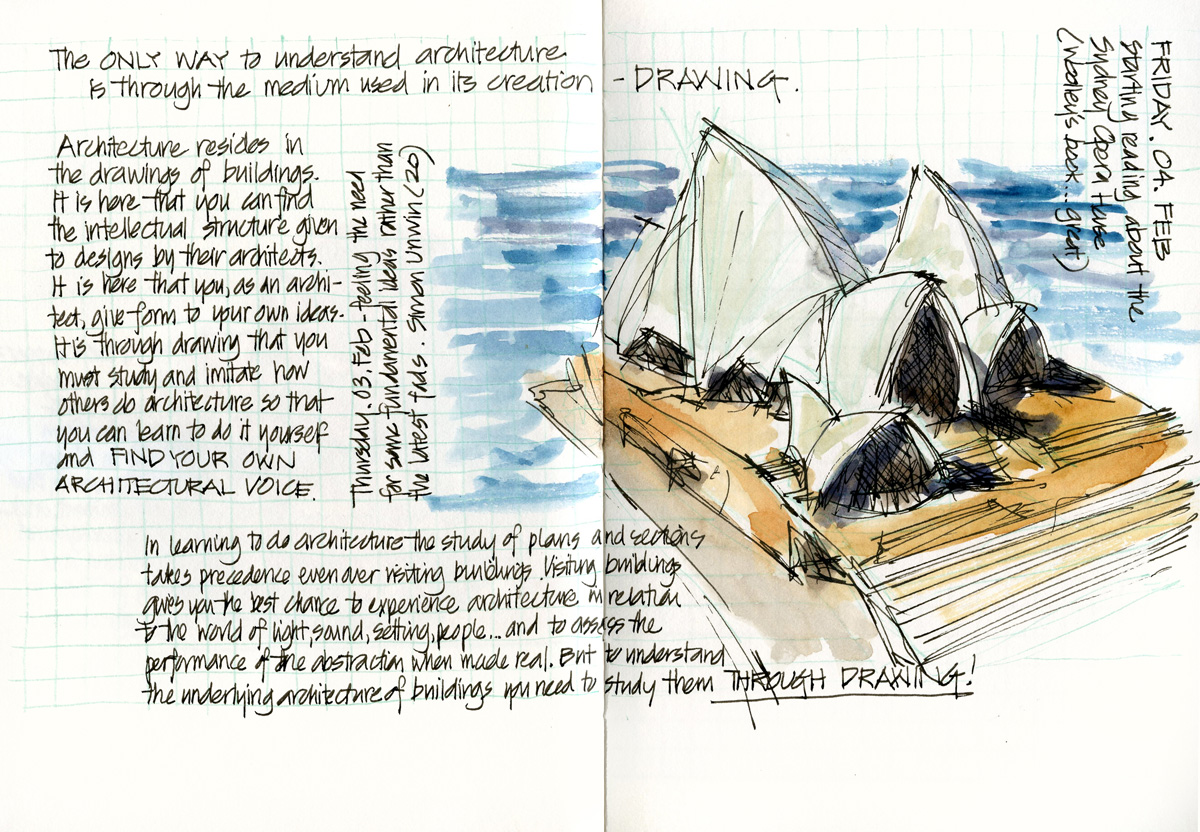 The ONLY WAY to understand architecture
is through the medium used in its creation - DRAWING.
Architecture resides in
the drawings of buildings.
It is here that you can find
the intellectual structure given
to designs by their architects.
It is here that you, as an archi-
tect, give form to your own ideas.
It is through drawing that you
must study and imitate how
others do architecture so that
you can learn to do it yourself
and FIND YOUR OWN
ARCHITECTURAL VOICE.
Thursday. 03. Feb - feeling the need
for some fundamental ideas rather than
the latest fads. Simon Unwin (20)
FRIDAY. 04. FEB
starting reading about the
Sydney Opera House
( book... great)
In learning to do architecture the study of plans and sections
takes precedence even over visiting buildings. Visiting buildings
gives you the best chance to experience architecture in relation
to the world of light, sound, setting, people... and to assess the
performance of the abstraction when made real. But to understand
the underlying architecture of buildings you need to study them THROUGH DRAWING!